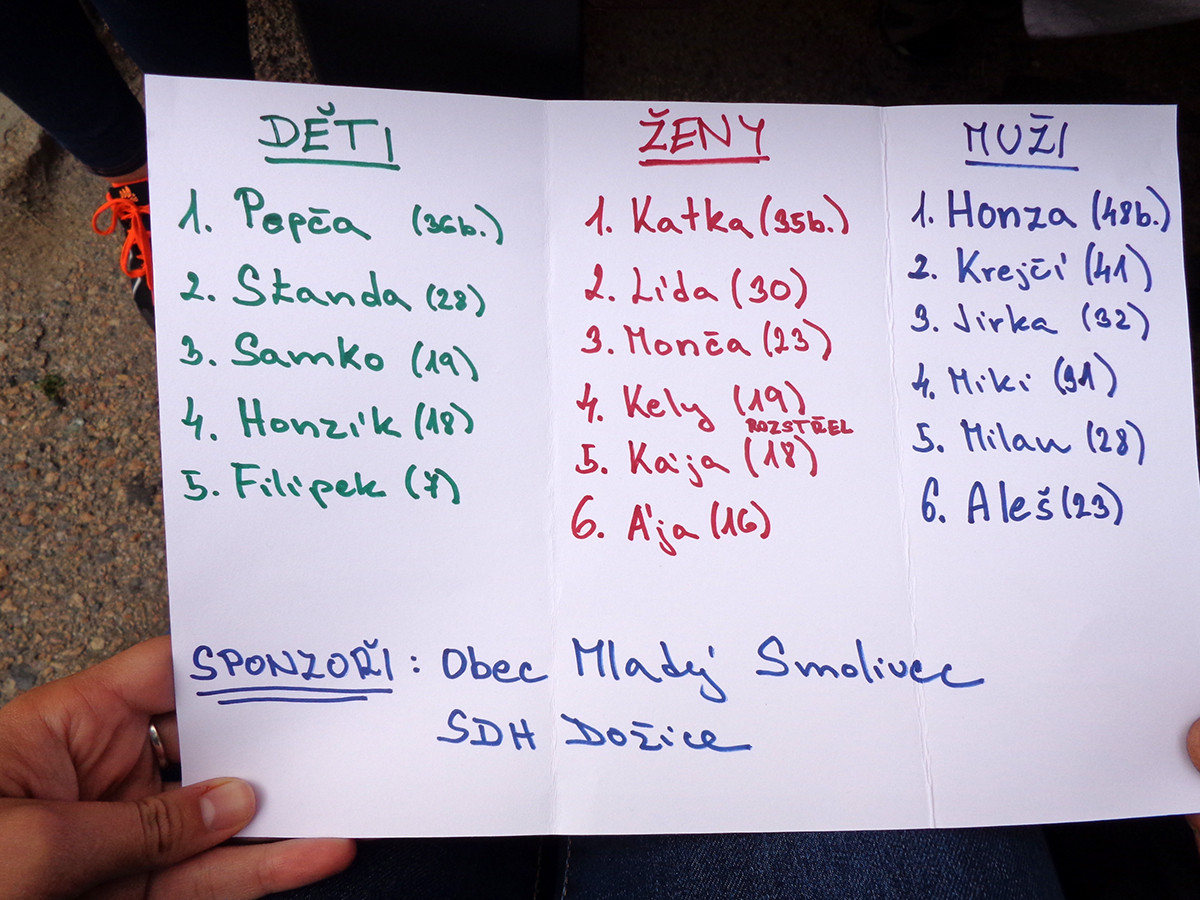 DĚTI
1. Pepča (36b.)
2. Standa (28)
3. Samko (19)
4. Honzík (18)
5. Filípek (7)
ŽENY
1. Katka (35b.)
2. Lída (30)
3. Monča (23)
4. Kely (19)
ROZSTŘEL
5. Kája (18)
6. Ája (16)
MUŽI
1. Honza (48b.)
2. Krejčí (41)
3. Jirka (32)
4. Miki (31)
5. Milan (28)
6. Aleš (23)
SPONZOŘI: Obec Mladý Smolivec
SDH Dožice